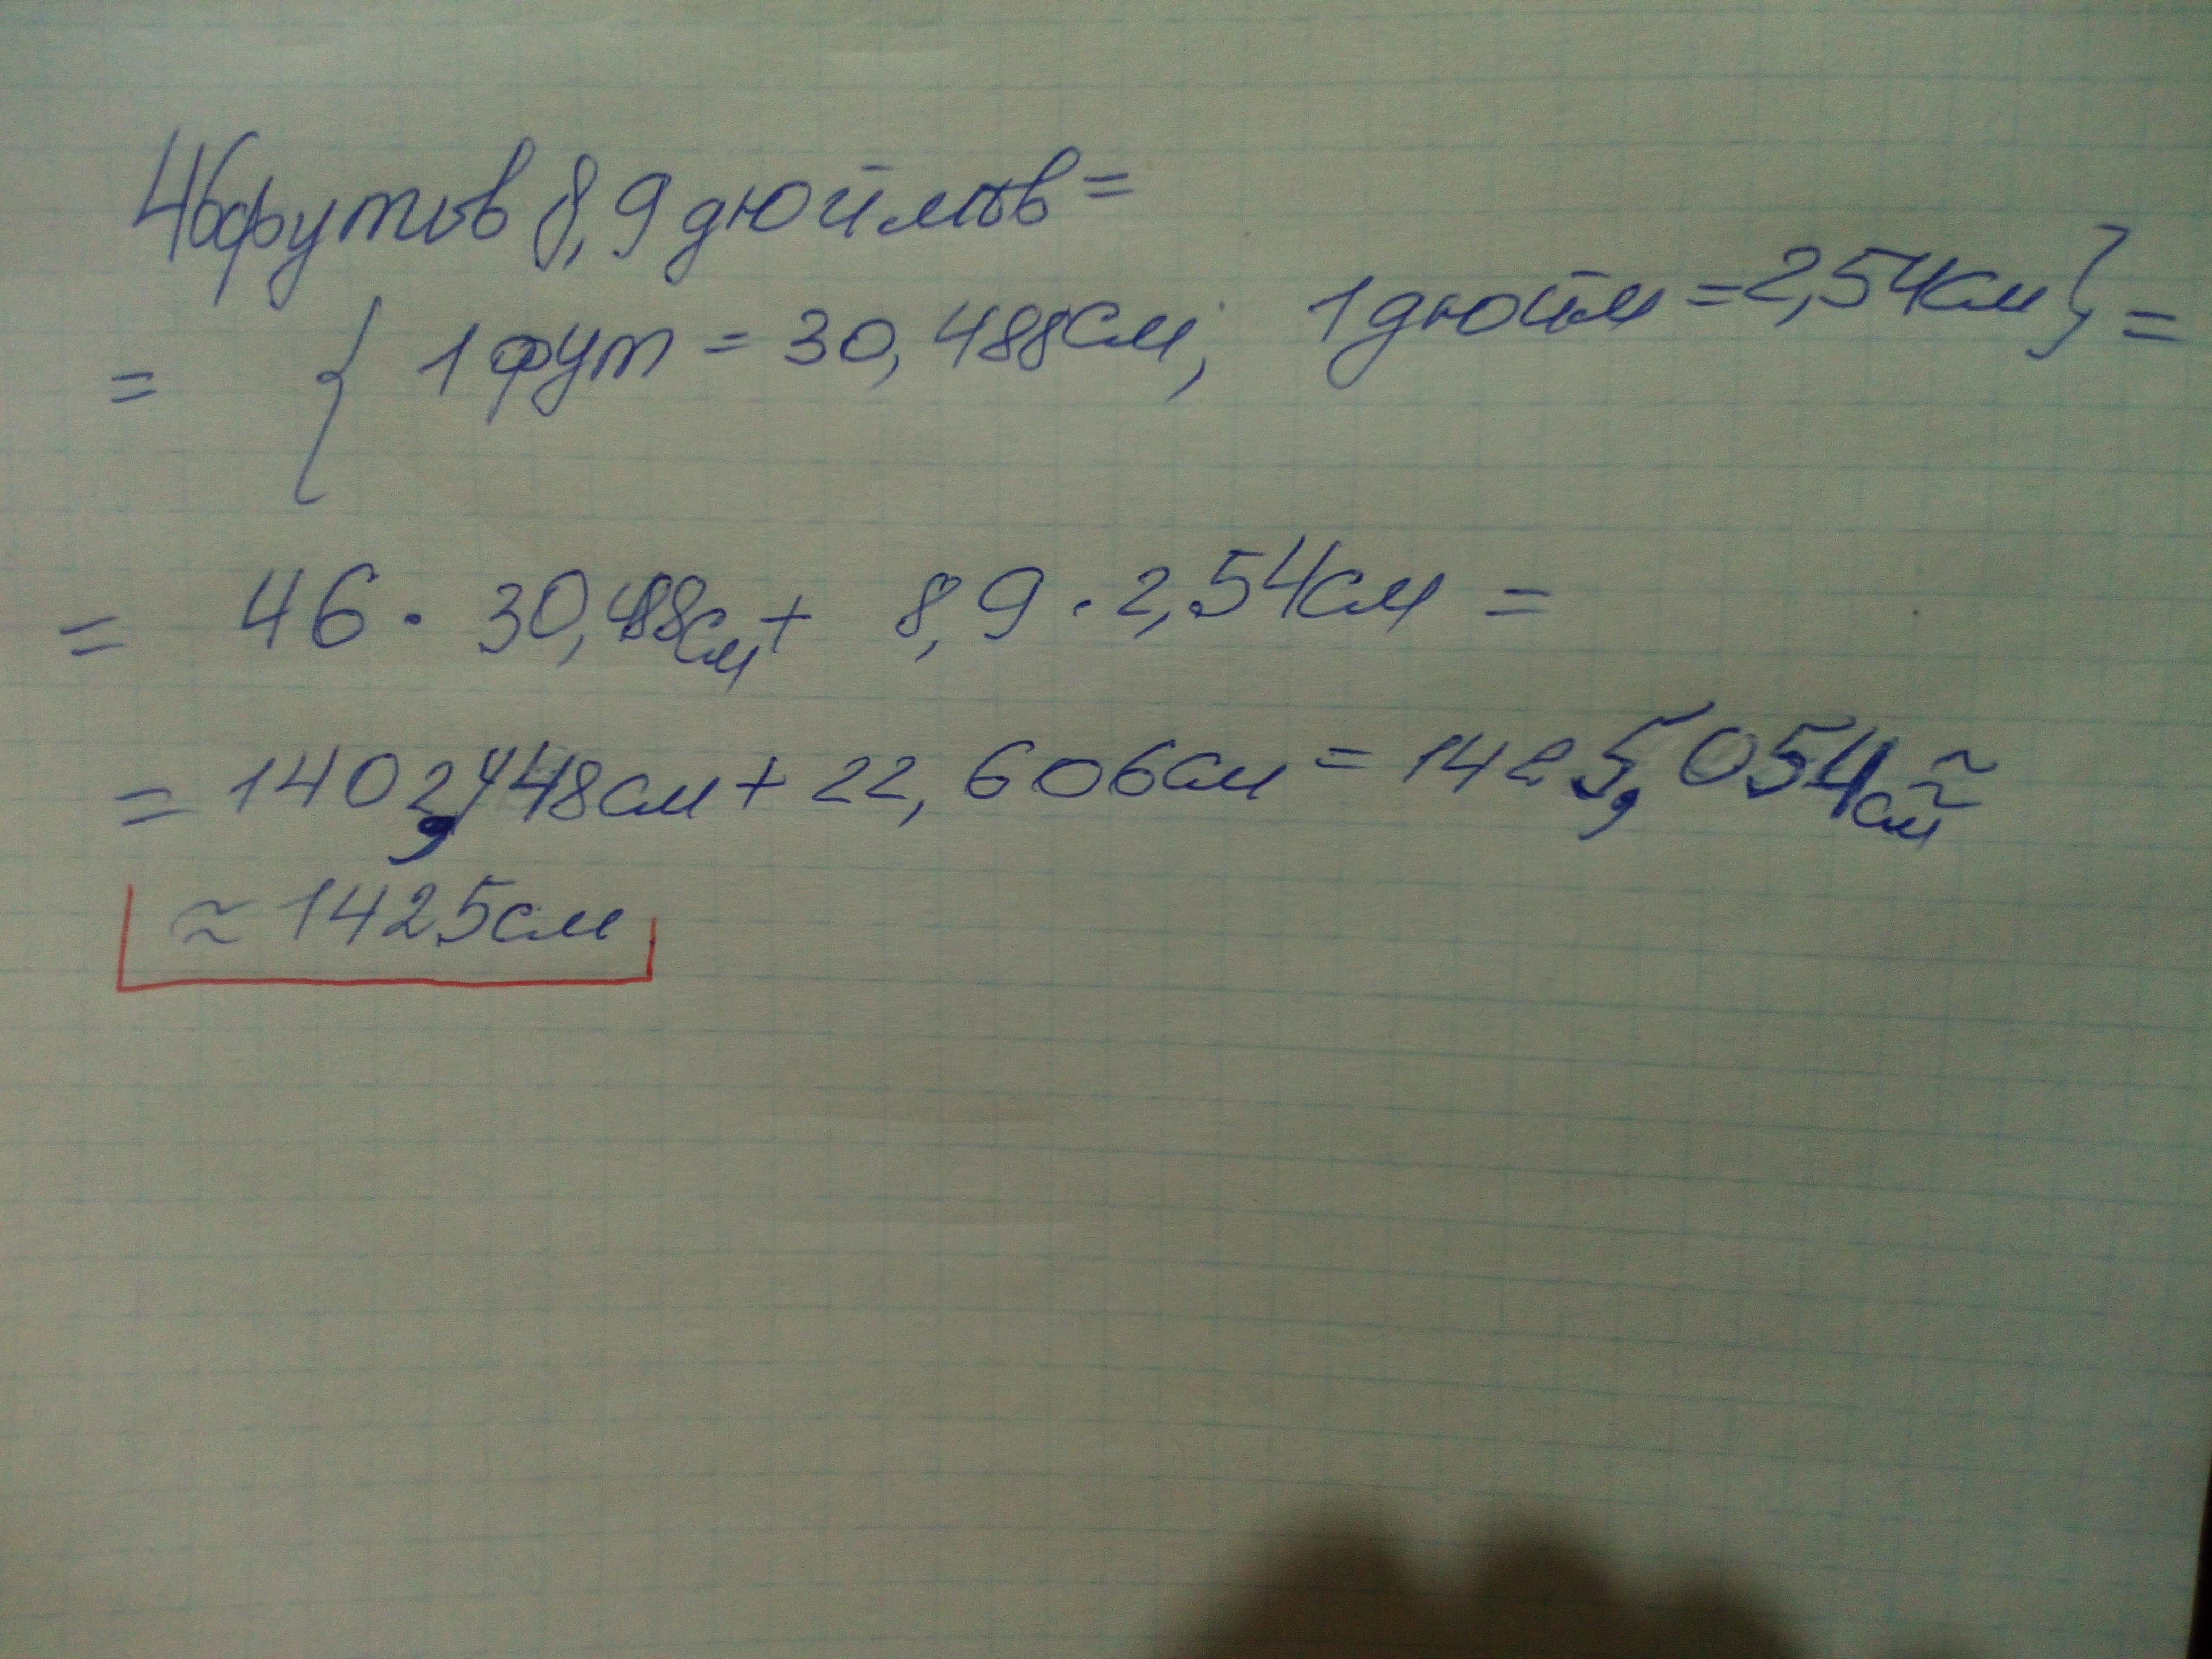 46футов 8,9дюймов=
= { 1фут = 30,488см; 1дюйм =2,54см}=
= 46 · 30,488см + 8,9 · 2,54см =
= 1402,448см + 22,606см = 1425,054см ≈
≈ 1425см